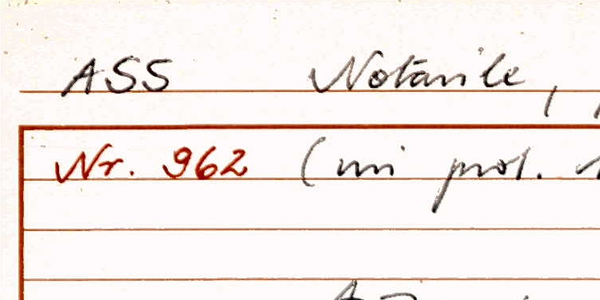 ASS Notarile,
Nr. 962 (mi prot. 1